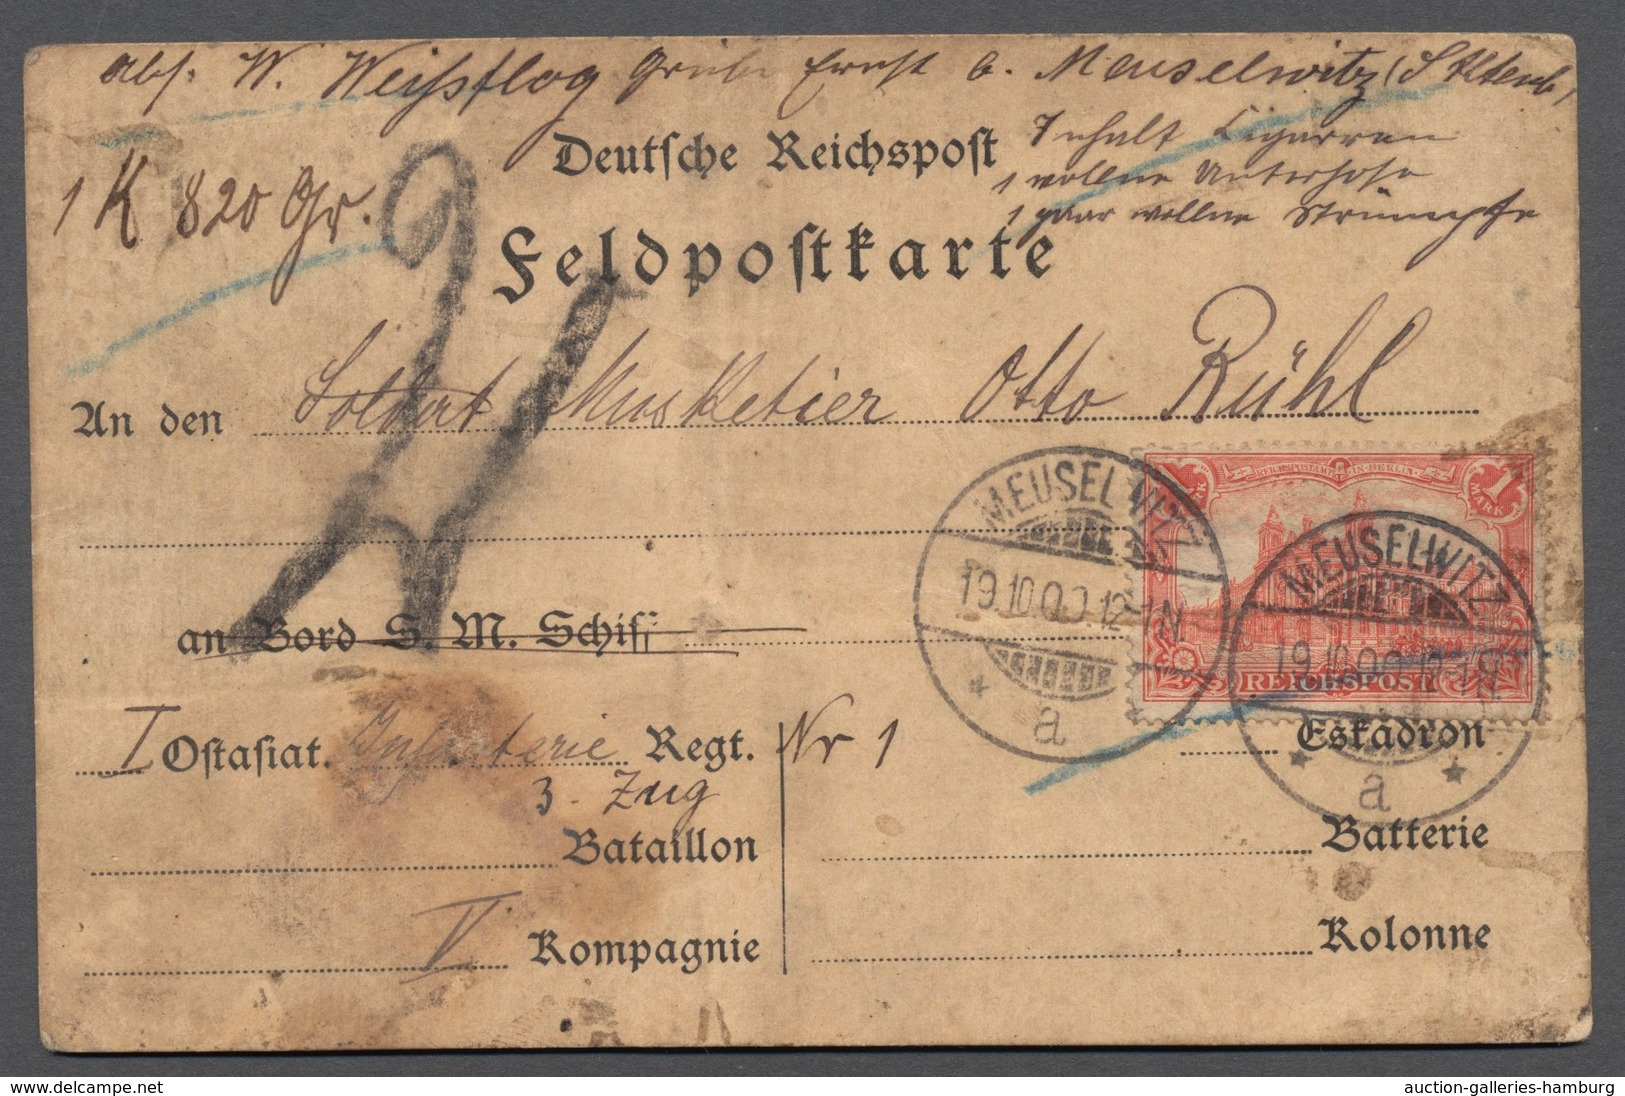 Abs. W. Weißflog Grube Ernst b. Meuselwitz (S Altenb)
Deutsche Reichspost
Inhalt Cigarren
1 wollne Unterhose
1 paar wollne Strümpfe
1 K 820 Gr.
Feldpostkarte
An den Soldat Musketier Otto Rühl
REICHSPOSTAMT IN BERLIN
1 MARK
MEUSELWITZ
19.10.00.12-1N
a
MEUSELWITZ
19.10.00.12-1N
a
REICHSPOST
an Bord S. M. Schiff
I Ostasiat. Infanterie Regt. Nr 1
Eskadron
3. Zug
Bataillon
Batterie
V Kompagnie
Kolonne
www.delcampe.net
auction-galleries-hamburg